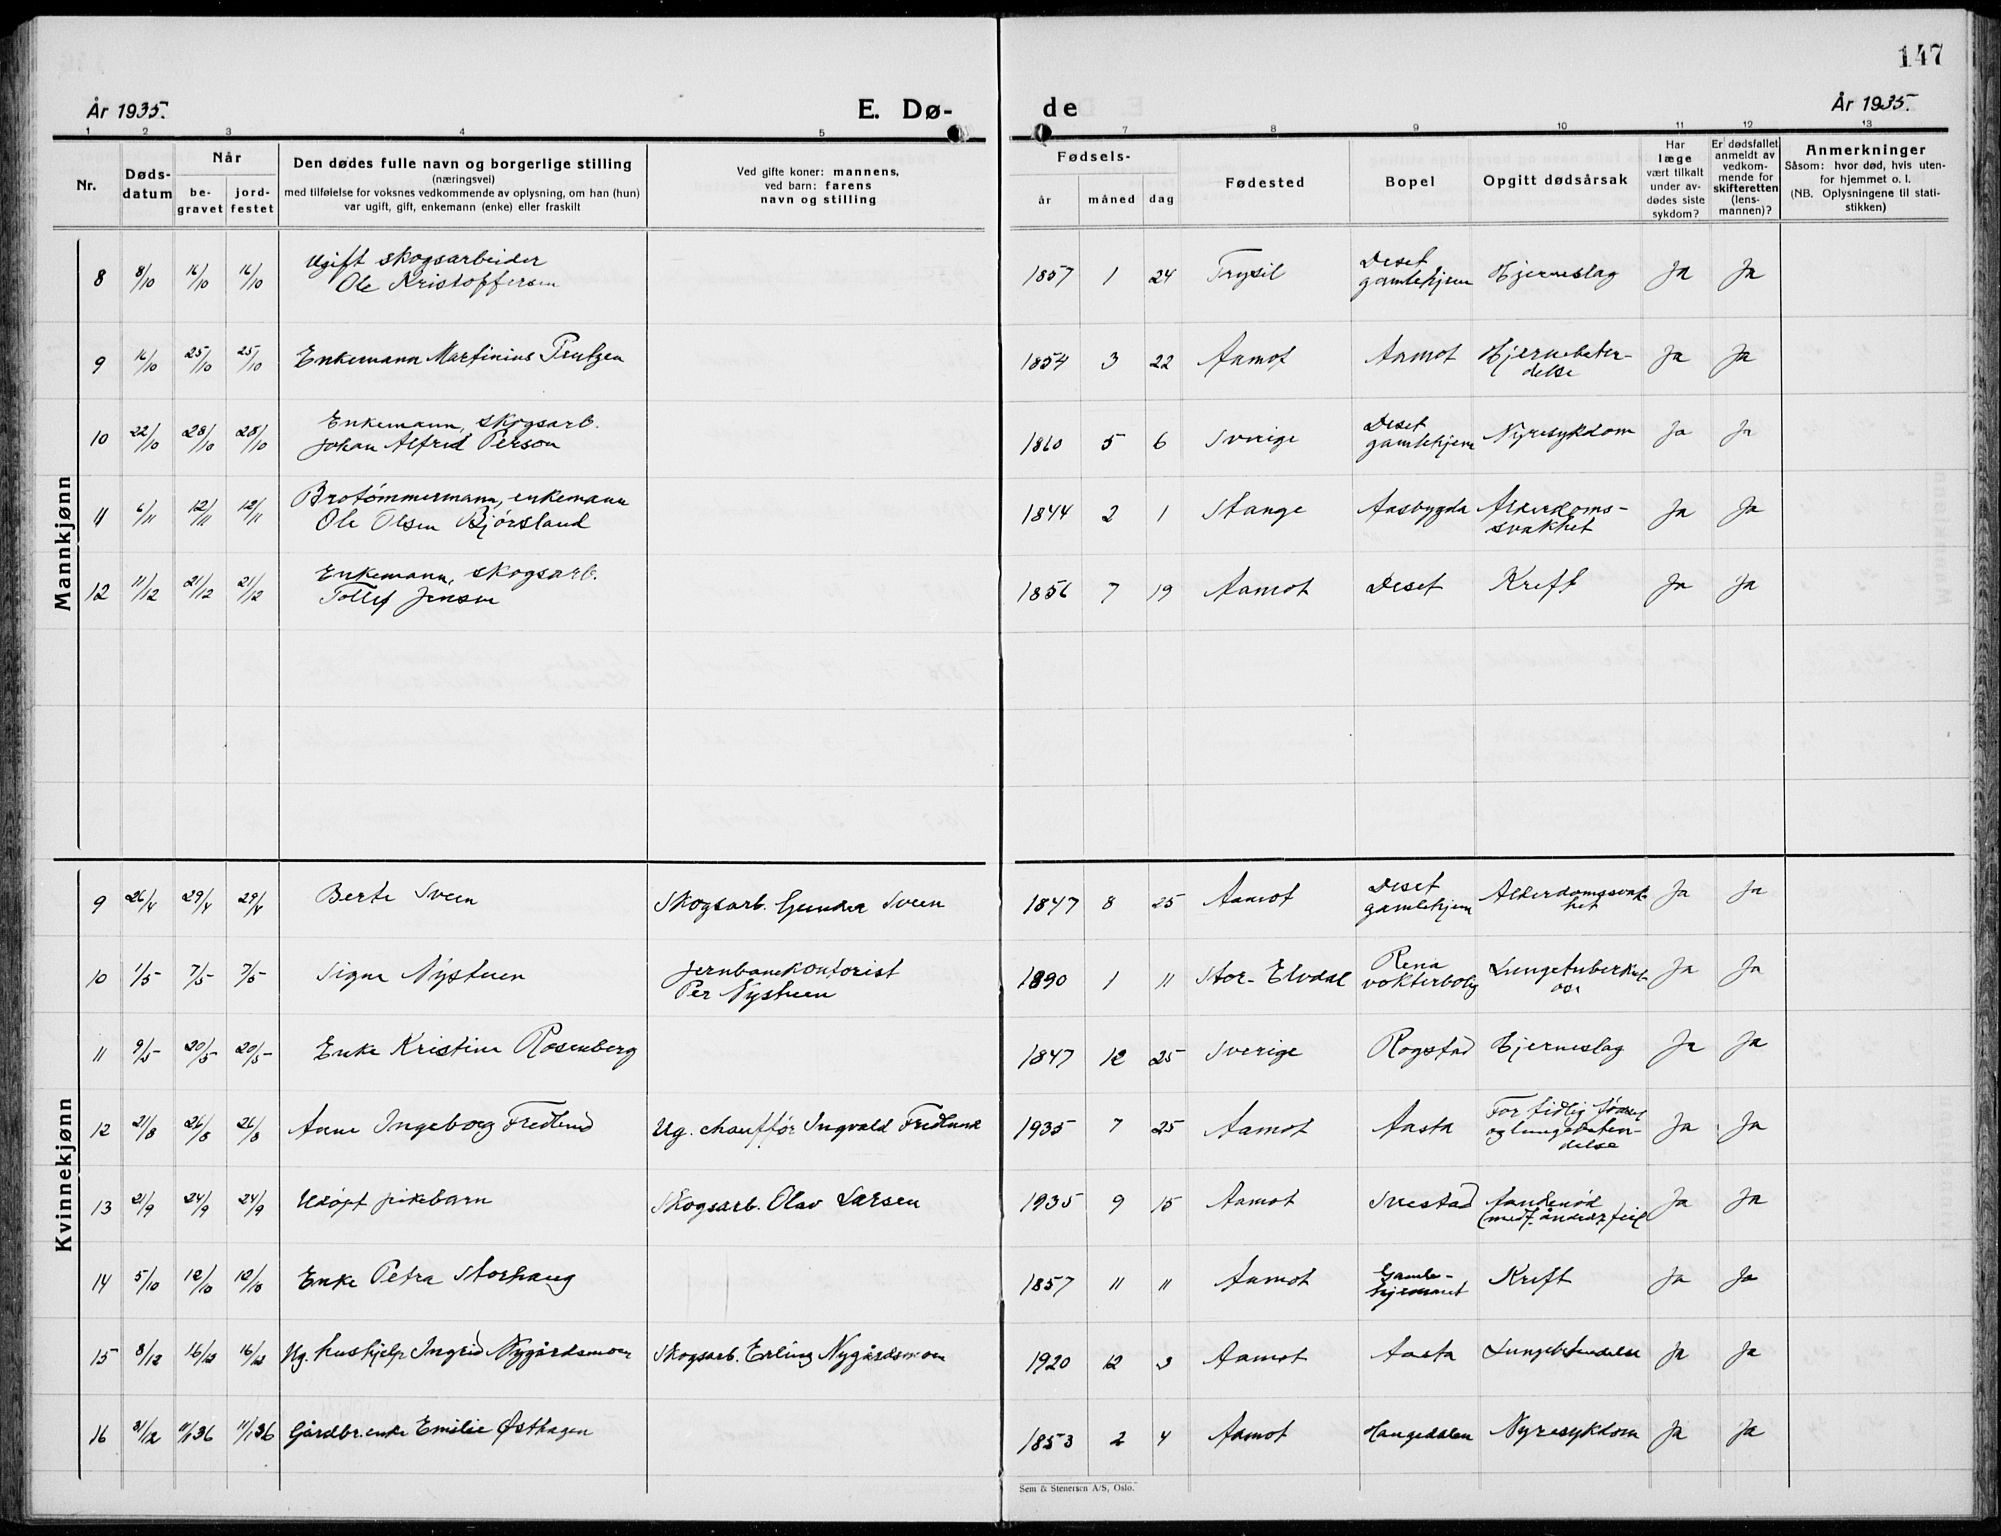 147
År 1935.
E. Dø-
de
År 1935.
1 2 3 4 5 7 8 9 10 11 12 13
Nr.
Døds-
datum
Når
be-
gravet
jord-
festet
Den dødes fulle navn og borgerlige stilling
(næringsvei)
med tilføielse for voksnes vedkommende av oplysning, om han (hun)
var ugift, gift, enkemann (enke) eller fraskilt
Ved gifte koner: mannens,
ved barn: farens
navn og stilling
Fødsels-
år måned dag
Fødested
Bopel
Opgitt dødsårsak
Har
læge
vært tilkalt
under av-
dødes siste
sykdom?
Er dødsfallet
anmeldt av
vedkom-
mende for
skifteretten
(lens-
mannen)?
Anmerkninger
Såsom: hvor død, hvis uten-
for hjemmet o. l.
(NB. Oplysningene til stati-
stikken)
Mannkjønn
8 8/10 16/10 16/10 Ugift skogsarbeider
Ole Kristoffersen
1857 1 24 Trysil Deset
gamlehjem Hjerneslag Ja Ja
9 16/10 25/10 25/10 Enkemann Martinius Trulsen
1854 3 22 Aamot Aamot Hjernebeten-
delse Ja Ja
10 22/10 28/10 28/10 Enkemann, skogsarb.
Johan Alfred Person
1860 5 6 Sverige Deset
gamlehjem Nyresykdom Ja Ja
11 6/11 12/11 12/11 Brotømmermann, enkemann
Ole Olsen Bjørsland
1844 2 1 Stange Aasbygda Alderdoms-
svakhet Ja Ja
12 11/12 21/12 21/12 Enkemann, skogsarb.
Tollef Jensen
1856 7 19 Aamot Deset Kreft Ja Ja
Kvinnekjønn
9 26/4 29/4 29/4 Berte Sveen Skogsarb. Gunder Sveen
1847 8 25 Aamot Deset
gamlehjem Alderdomssvak-
het Ja Ja
10 1/5 7/5 7/5 Signe Nystuen Jernbanekontorist
Per Nystuen
1890 1 11 Stor-Elvdal Rena
vokterbolig Lungetuberkul-
ose Ja Ja
11 9/5 20/5 20/5 Enke Kristine Rosenberg
1847 12 25 Sverige Rogstad Hjerneslag Ja Ja
12 21/8 26/8 26/8 Anne Ingeborg Fredlund Ug. chauffør Ingvald Fredlund
1935 7 25 Aamot Aasta For tidlig fødsel
og lungebeten-
delse Ja Ja
13 21/9 24/9 24/9 Udøpt pikebarn Skogsarb. Olav Larsen
1935 9 15 Aamot Svestad Aandenød
Ja Ja
14 5/10 12/10 12/10 Enke Petra Storhaug
1857 11 11 Aamot Gamle-
hjemmet Kreft Ja Ja
15 8/12 16/12 16/12 Ug. hushjelp Ingrid Nygårdsmoen Skogsarb. Erling Nygårdsmoen
1920 12 3 Aamot Aasta Lungebetendelse Ja Ja
16 31/12 11/1 36 11/1 36 Gårdbr.enke Emilie Østhagen
1853 2 4 Aamot Haugedalen Nyresykdom Ja Ja
Sem & Stenersen A/S, Oslo.